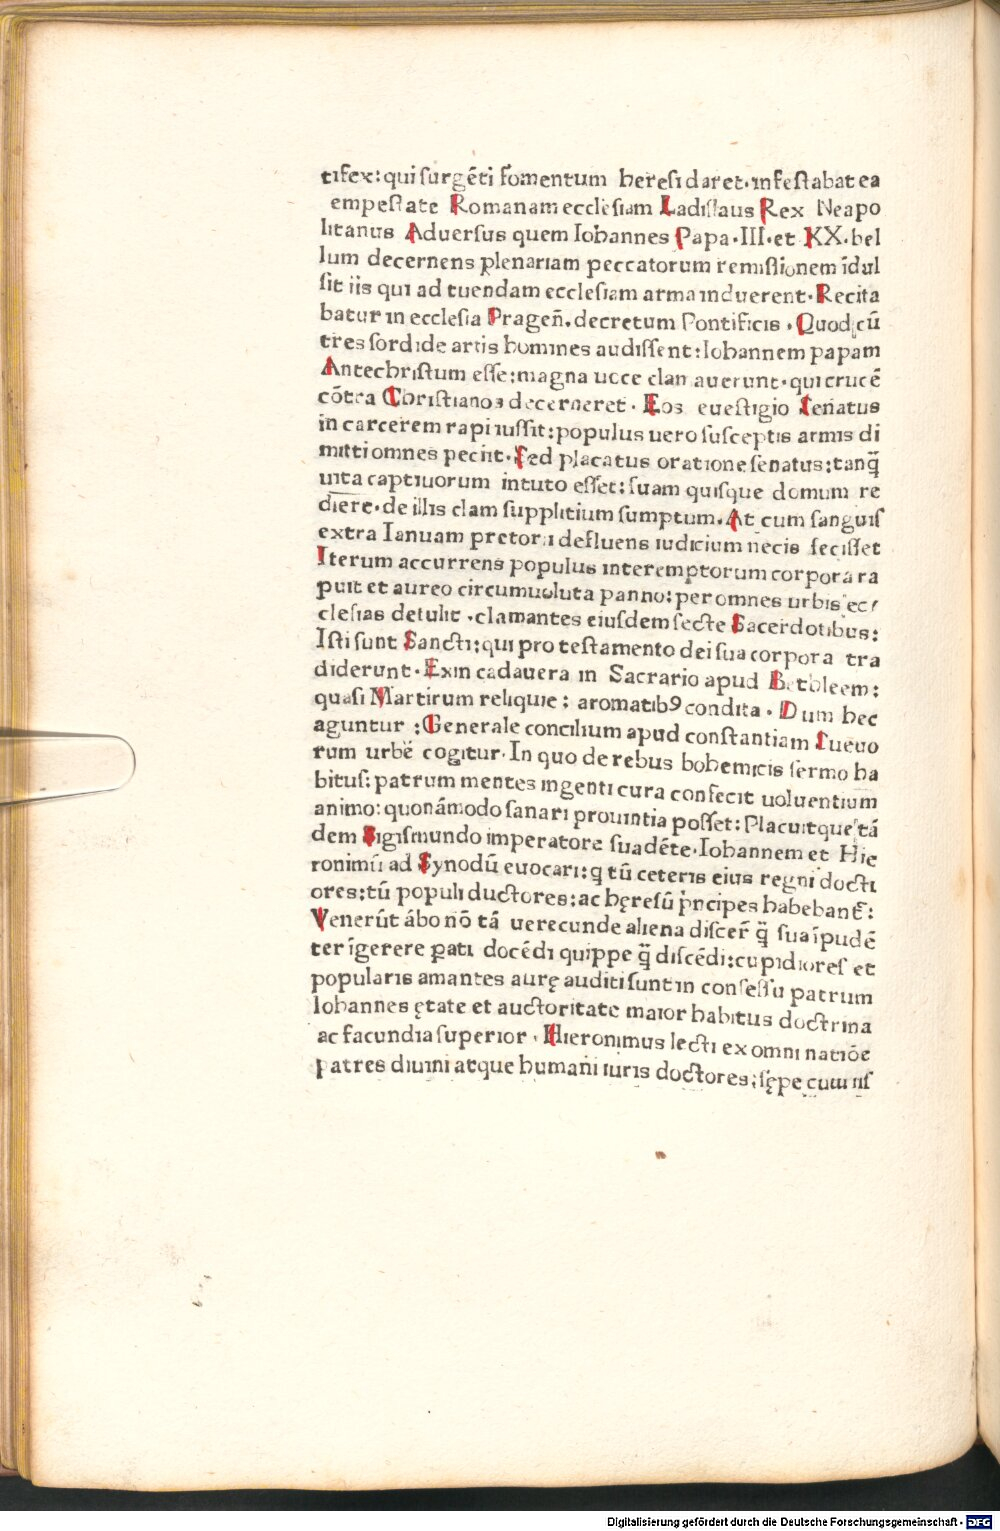 tifex: qui surgẽti fomentum heresi daret. infestabat ea
empestate Romanam ecclesiam Ladislaus Rex Neapo
litanus Aduersus quem Iohannes Papa. III. et XX. bel
lum decernens plenariam peccatorum remissionem ĩdul
sit iis qui ad tuendam ecclesiam arma induerent. Recita
batur in ecclesia Pragen̄. decretum Pontificis. Quod cũ
tres sordide artis homines audissent: Iohannem papam
Antechristum esse: magna uoce clan auerunt. qui crucẽ
cõtra Christianos decerneret. Eos euestigio senatus
in carcerem rapi iussit: populus uero susceptis armis di
mitti omnes peciit. sed placatus oratione senatus: tanq̃
uita captiuorum intuto esset: suam quisque domum re
diere. de illis clam supplitium sumptum. At cum sanguis
extra Ianuam pretorii defluens iudicium necis fecisset
Iterum accurrens populus interemptorum corpora ra
puit et aureo circumuoluta panno: per omnes urbis ec/
clesias detulit. clamantes eiusdem secte Sacerdotibus:
Isti sunt Sancti: qui pro testamento dei sua corpora tra
diderunt. Exin cadauera in Sacrario apud Bethleem:
quasi Martirum reliquie: aromatibꝰ condita. Dum hec
aguntur: Generale concilium apud constantiam sueuo
rum urbẽ cogitur. In quo de rebus bohemicis sermo ha
bitus: patrum mentes ingenti cura confecit uoluentium
animo: quonãmodo sanari prouintia posset: Placuitque tã
dem Sigismundo imperatore suadẽte. Iohannem et Hie
ronimũ ad Synodũ euocari: q tũ ceteris eius regni docti
ores: tũ populi ductores: ac hęresũ p̄ncipes habebant̃:
Venerũt ábo nõ tã uerecunde aliena discer̄ q̃ sua ĩpudẽ
ter ĩgerere ꝑati docẽdi quippe q̃ discẽdi: cupidiores et
popularis amantes aurę auditi sunt in consessu patrum
Iohannes ętate et auctoritate maior habitus doctrina
ac facundia superior. Hieronimus lecti ex omni natiõe
patres diuini atque humani iuris doctores: sępe cum iis
Digitalisierung gefördert durch die Deutsche Forschungsgemeinschaft - DFG